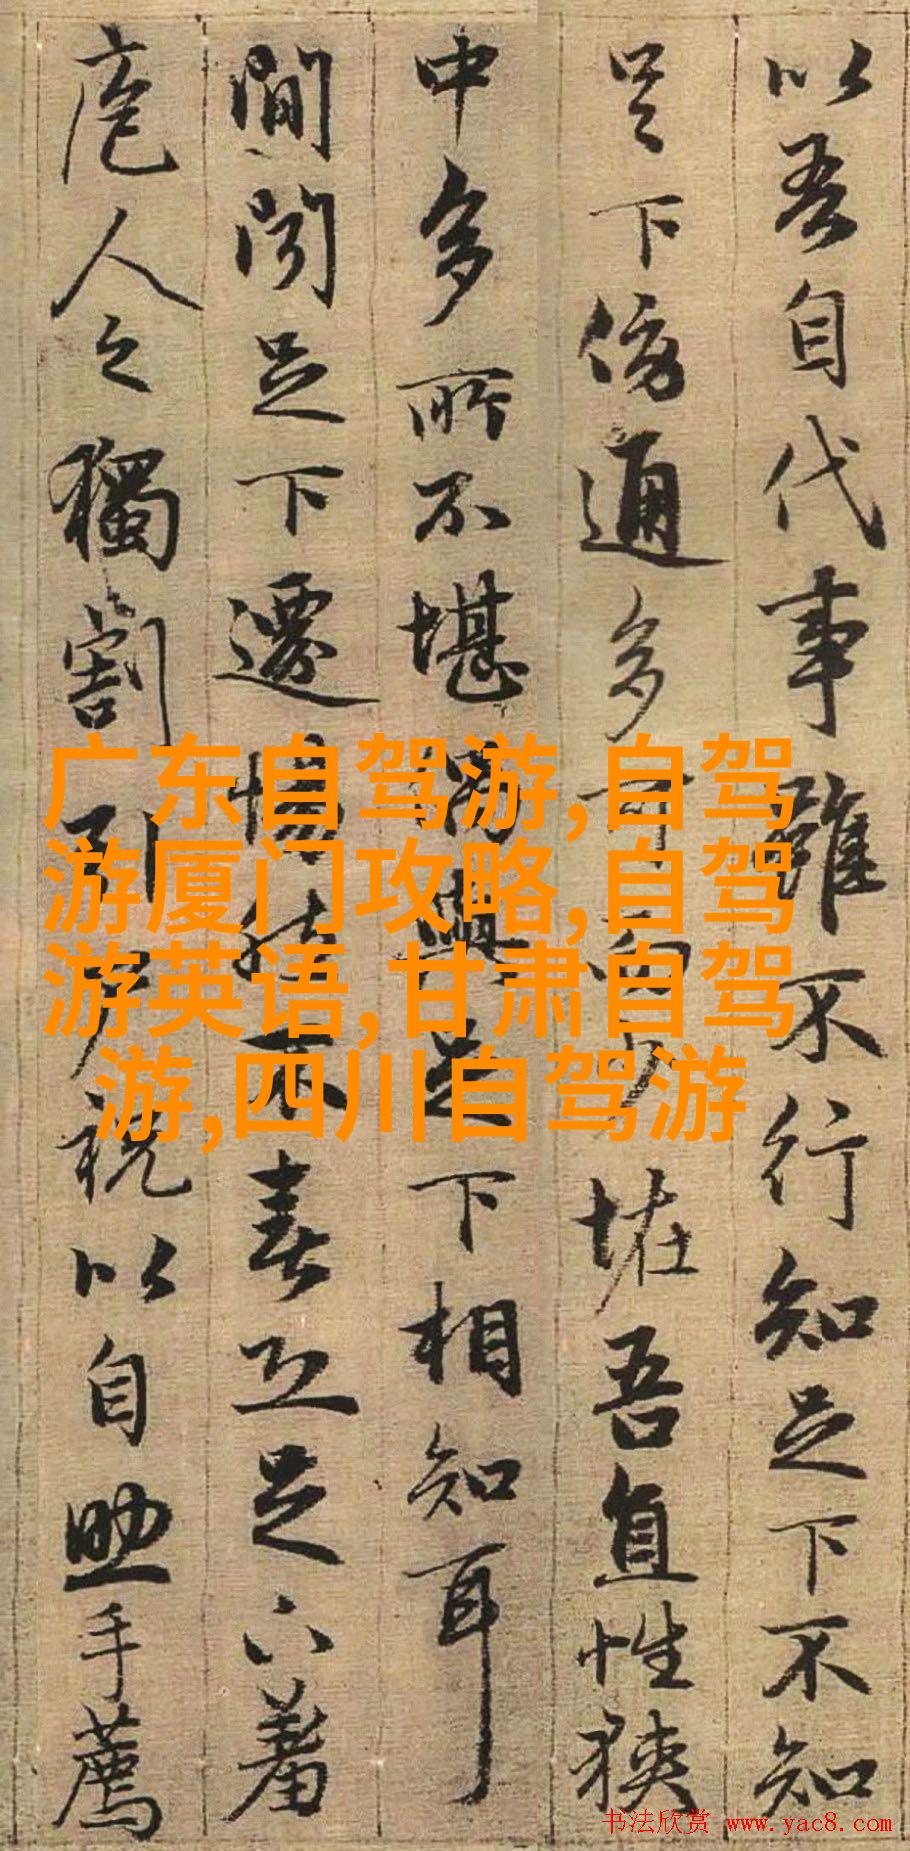 以吾自代事雖不行知足下不知
足下傍通多可而少恠吾直性狹
中多所不堪偶與足下相知耳
間聞足下遷惕然不喜恐足下羞
庖人之獨割引尸祝以自助手薦
广东自驾游,自驾
游厦门攻略,自驾
游英语,甘肃自驾
游,四川自驾游
书法欣赏 www.yac8.com